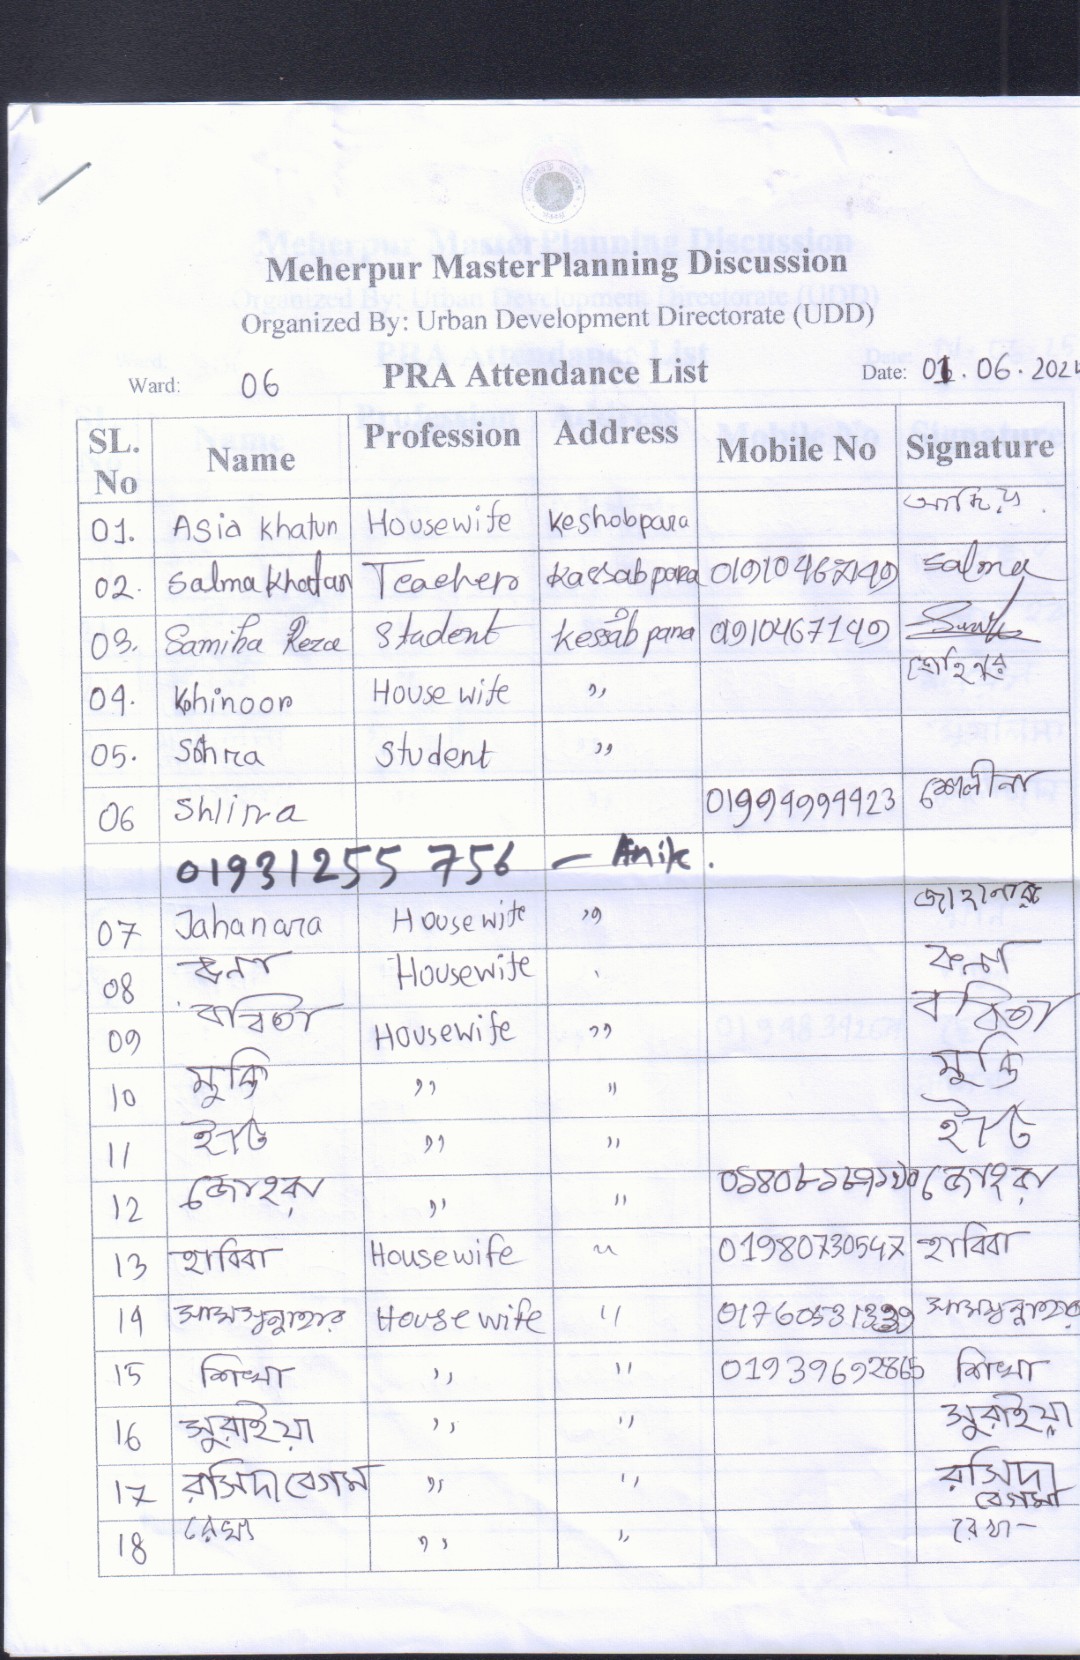 Meherpur MasterPlanning Discussion
Organized By: Urban Development Directorate (UDD)
Ward: 06 PRA Attendance List Date: 01.06.202
SL. No Name Profession Address Mobile No Signature
01. Asia Khatun Housewife Keshobpara
02. Salma Khatun Teacher Kassabpara 01910467149 Salma
03. Samiha Reza Student Kessabpara 01910467149
04. Kohinoor House wife ,, কোহিনুর
05. Student ,,
06 Shlina 01994994423 শেলীনা
01931255 756 – Anik.
07 Jahanara Housewife ,, জাহানারা
08 Housewife
09 ববিতা Housewife ,, ববিতা
10 মুক্তি ,, ,, মুক্তি
11 ,, ,,
12 জোহরা ,, ,, জোহরা
13 হাবিবা Housewife ,, 01980730547 হাবিবা
14 সামসুন্নাহার House wife ,, সামসুন্নাহার
15 শিখা ,, ,, 01939692865 শিখা
16 সুরাইয়া ,, ,, সুরাইয়া
17 রসিদা বেগম ,, ,, রসিদা বেগম
18 রেখা ,, ,, রেখা